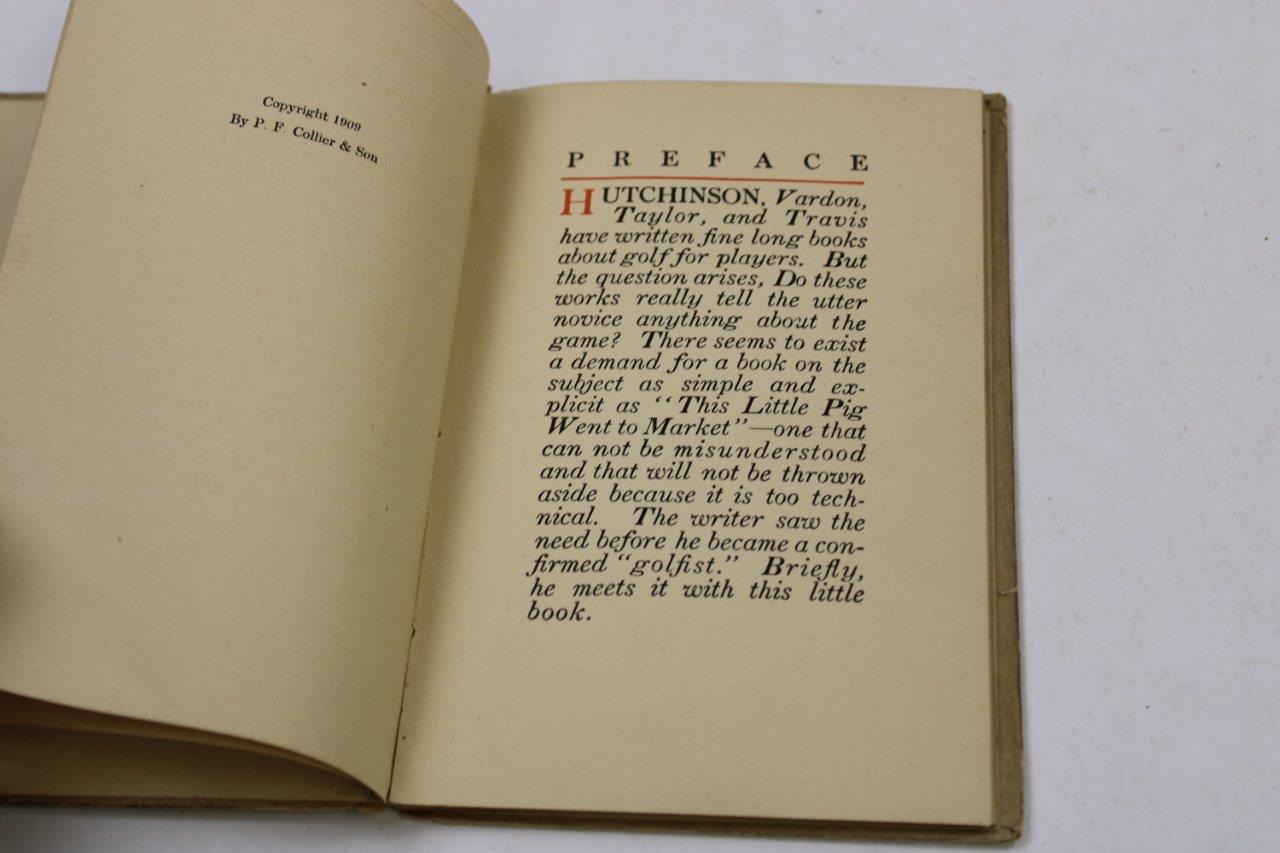 Copyright 1909
By P. F. Collier & Son
PREFACE
HUTCHINSON, Vardon,
Taylor, and Travis
have written fine long books
about golf for players. But
the question arises, Do these
works really tell the utter
novice anything about the
game? There seems to exist
a demand for a book on the
subject as simple and ex-
plicit as "This Little Pig
Went to Market"—one that
can not be misunderstood
and that will not be thrown
aside because it is too tech-
nical. The writer saw the
need before he became a con-
firmed "golfist." Briefly,
he meets it with this little
book.